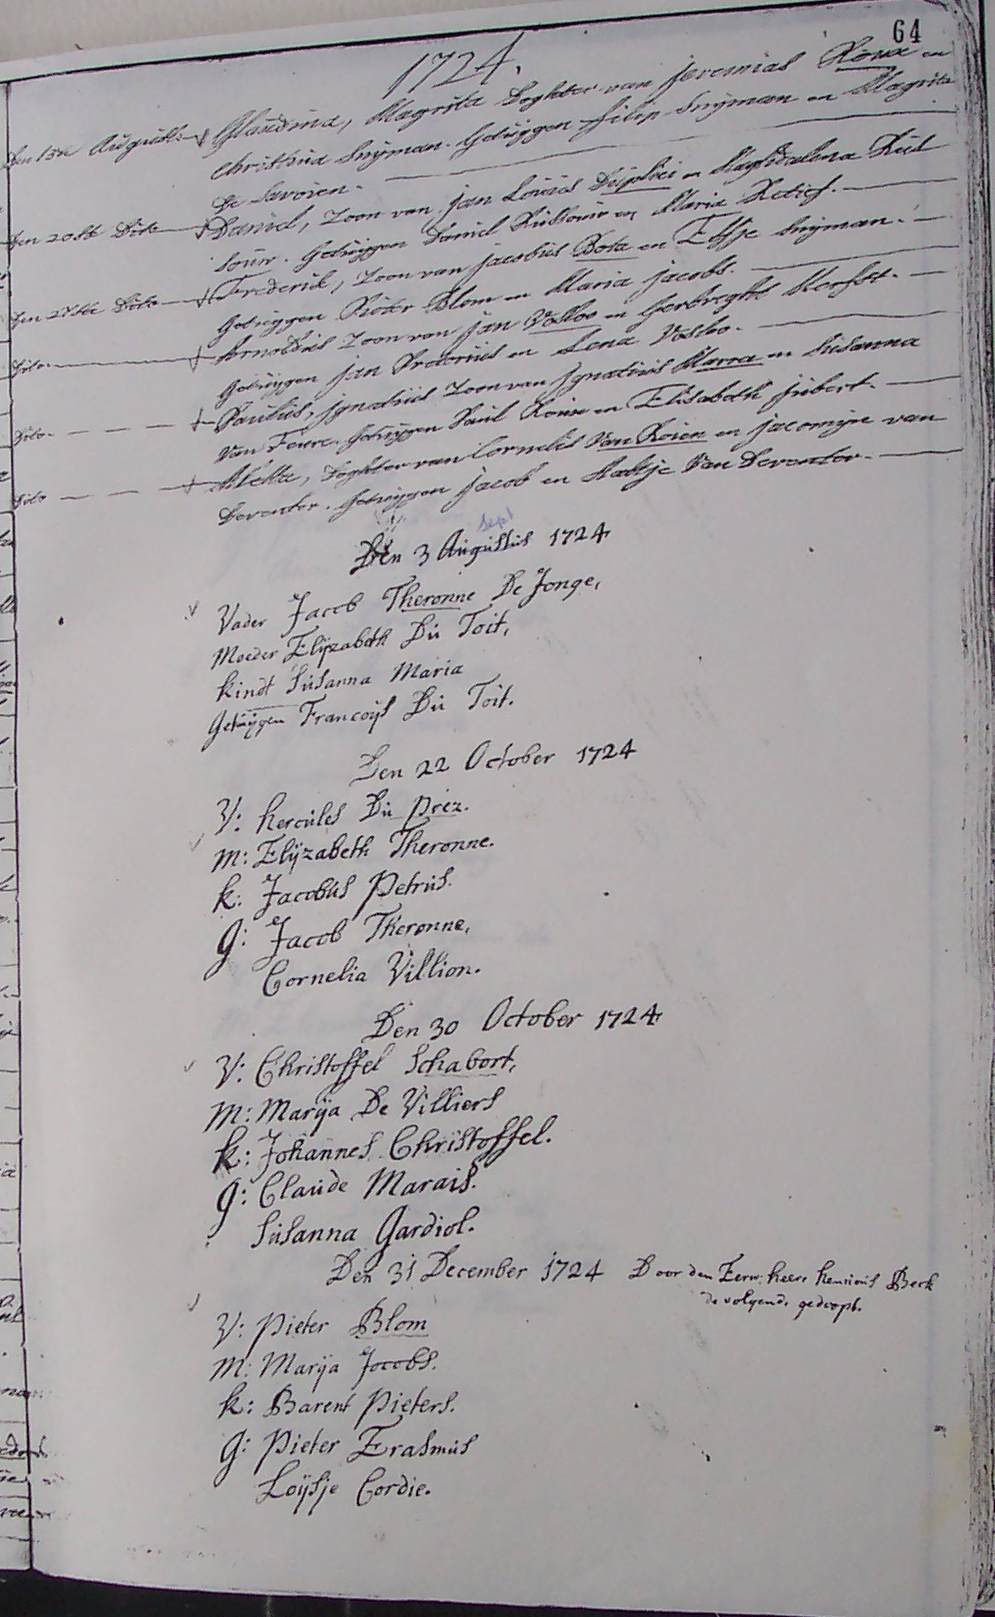 64
1724.
Den 13de Augusti Glaudina, Magrita Doghter van Jeremias Roux en
Christina Snijman. Getuijgen filip Snijman en Magrita
De Savoien.
Den 20ste Dito Daniel, Zoon van Jan Lowies Duplesi en Magdalena Rul
Souw. Getuijgen Daniel Rulsouw en Maria Retief.
Den 27ste Dito Frederik, Zoon van Jacobus Bota en Elsje Snijman.
Getuijgen Pieter Blom en Maria Jacobs.
Dito Arnoldus Zoon van Jan Vosloo en Gerbreght
Getuijgen Jan Pretorius en Lena Vosloo.
Dito Paulus, Ignatius Zoon van Ignatius Mare en Susanna
Van Feure. Getuijgen Paul Roux en Elisabeth Jubert.
Dito Aletta, Doghter van Cornelis Van Roien en Jacomijn van
Deventer. Getuijgen Jacob en Van Deventer.
Sept
Den 3 Augustus 1724
Vader Jacob Theronne De Jonge,
Moeder Elijzabeth Du Toit,
kindt Susanna Maria
Getuijgen Francoijs Du Toit.
Den 22 October 1724
V: hercules Du Prez.
M: Elijzabeth Theronne.
k: Jacobus Petrus.
G: Jacob Theronne,
Cornelia Villion.
Den 30 October 1724
V: Christoffel Schabort,
M: Marija De Villiers
k: Johannes Christoffel.
G: Claude Marais.
Susanna Gardiol.
Den 31 December 1724 Door den Eerw: heere henricus Beck
de volgende gedoopt.
V: Pieter Blom
M: Marija Jocobs.
k: Barent Pieters.
G: Pieter Erasmus
Loijsje Cordie.